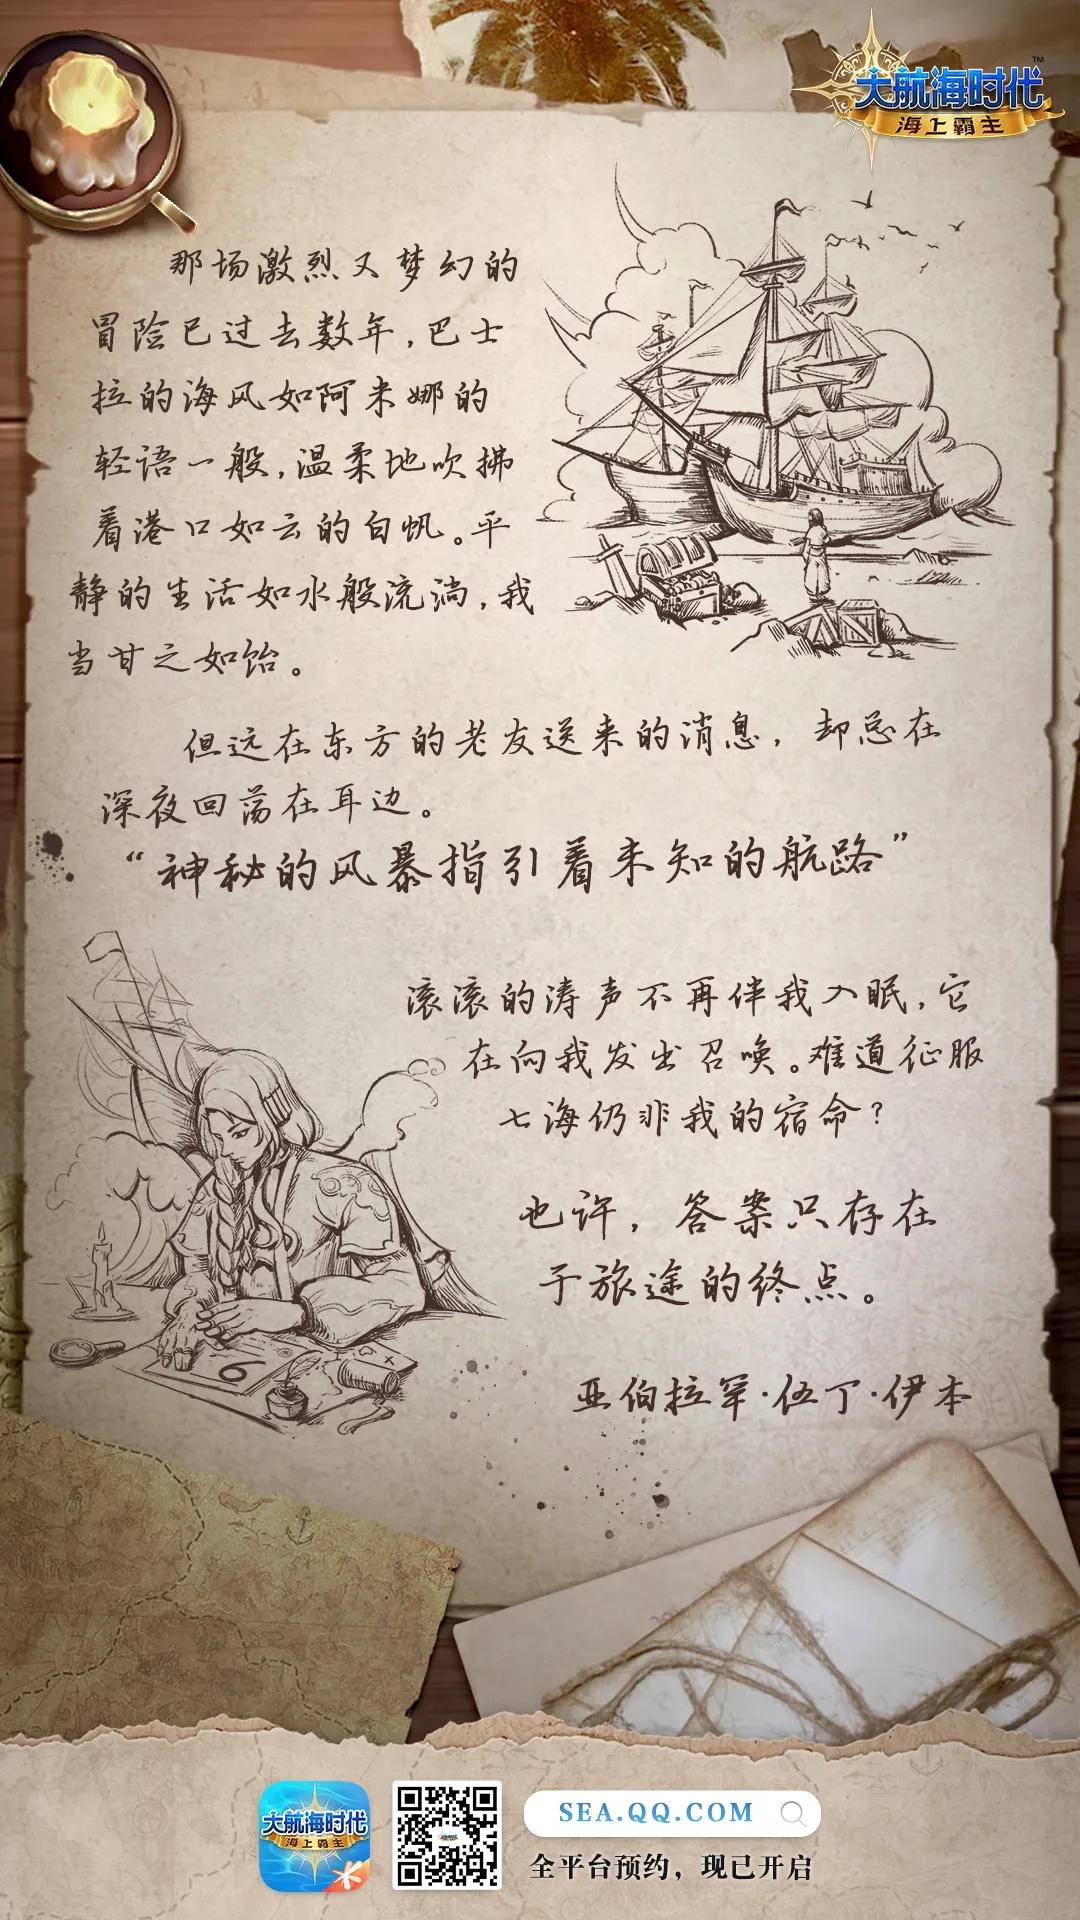 大航海时代™
海上霸主
那场激烈又梦幻的
冒险已过去数年，巴士
拉的海风如阿米娜的
轻语一般，温柔地吹拂
着港口如云的白帆。平
静的生活如水般流淌，我
当甘之如饴。
但远在东方的老友送来的消息，却总在
深夜回荡在耳边。
“神秘的风暴指引着未知的航路”
滚滚的涛声不再伴我入眠，它
在向我发出召唤。难道征服
七海仍非我的宿命？
也许，答案只存在
于旅途的终点。
亚伯拉罕·伍丁·伊本
6
大航海时代
海上霸主
SEA.QQ.COM
全平台预约，现已开启